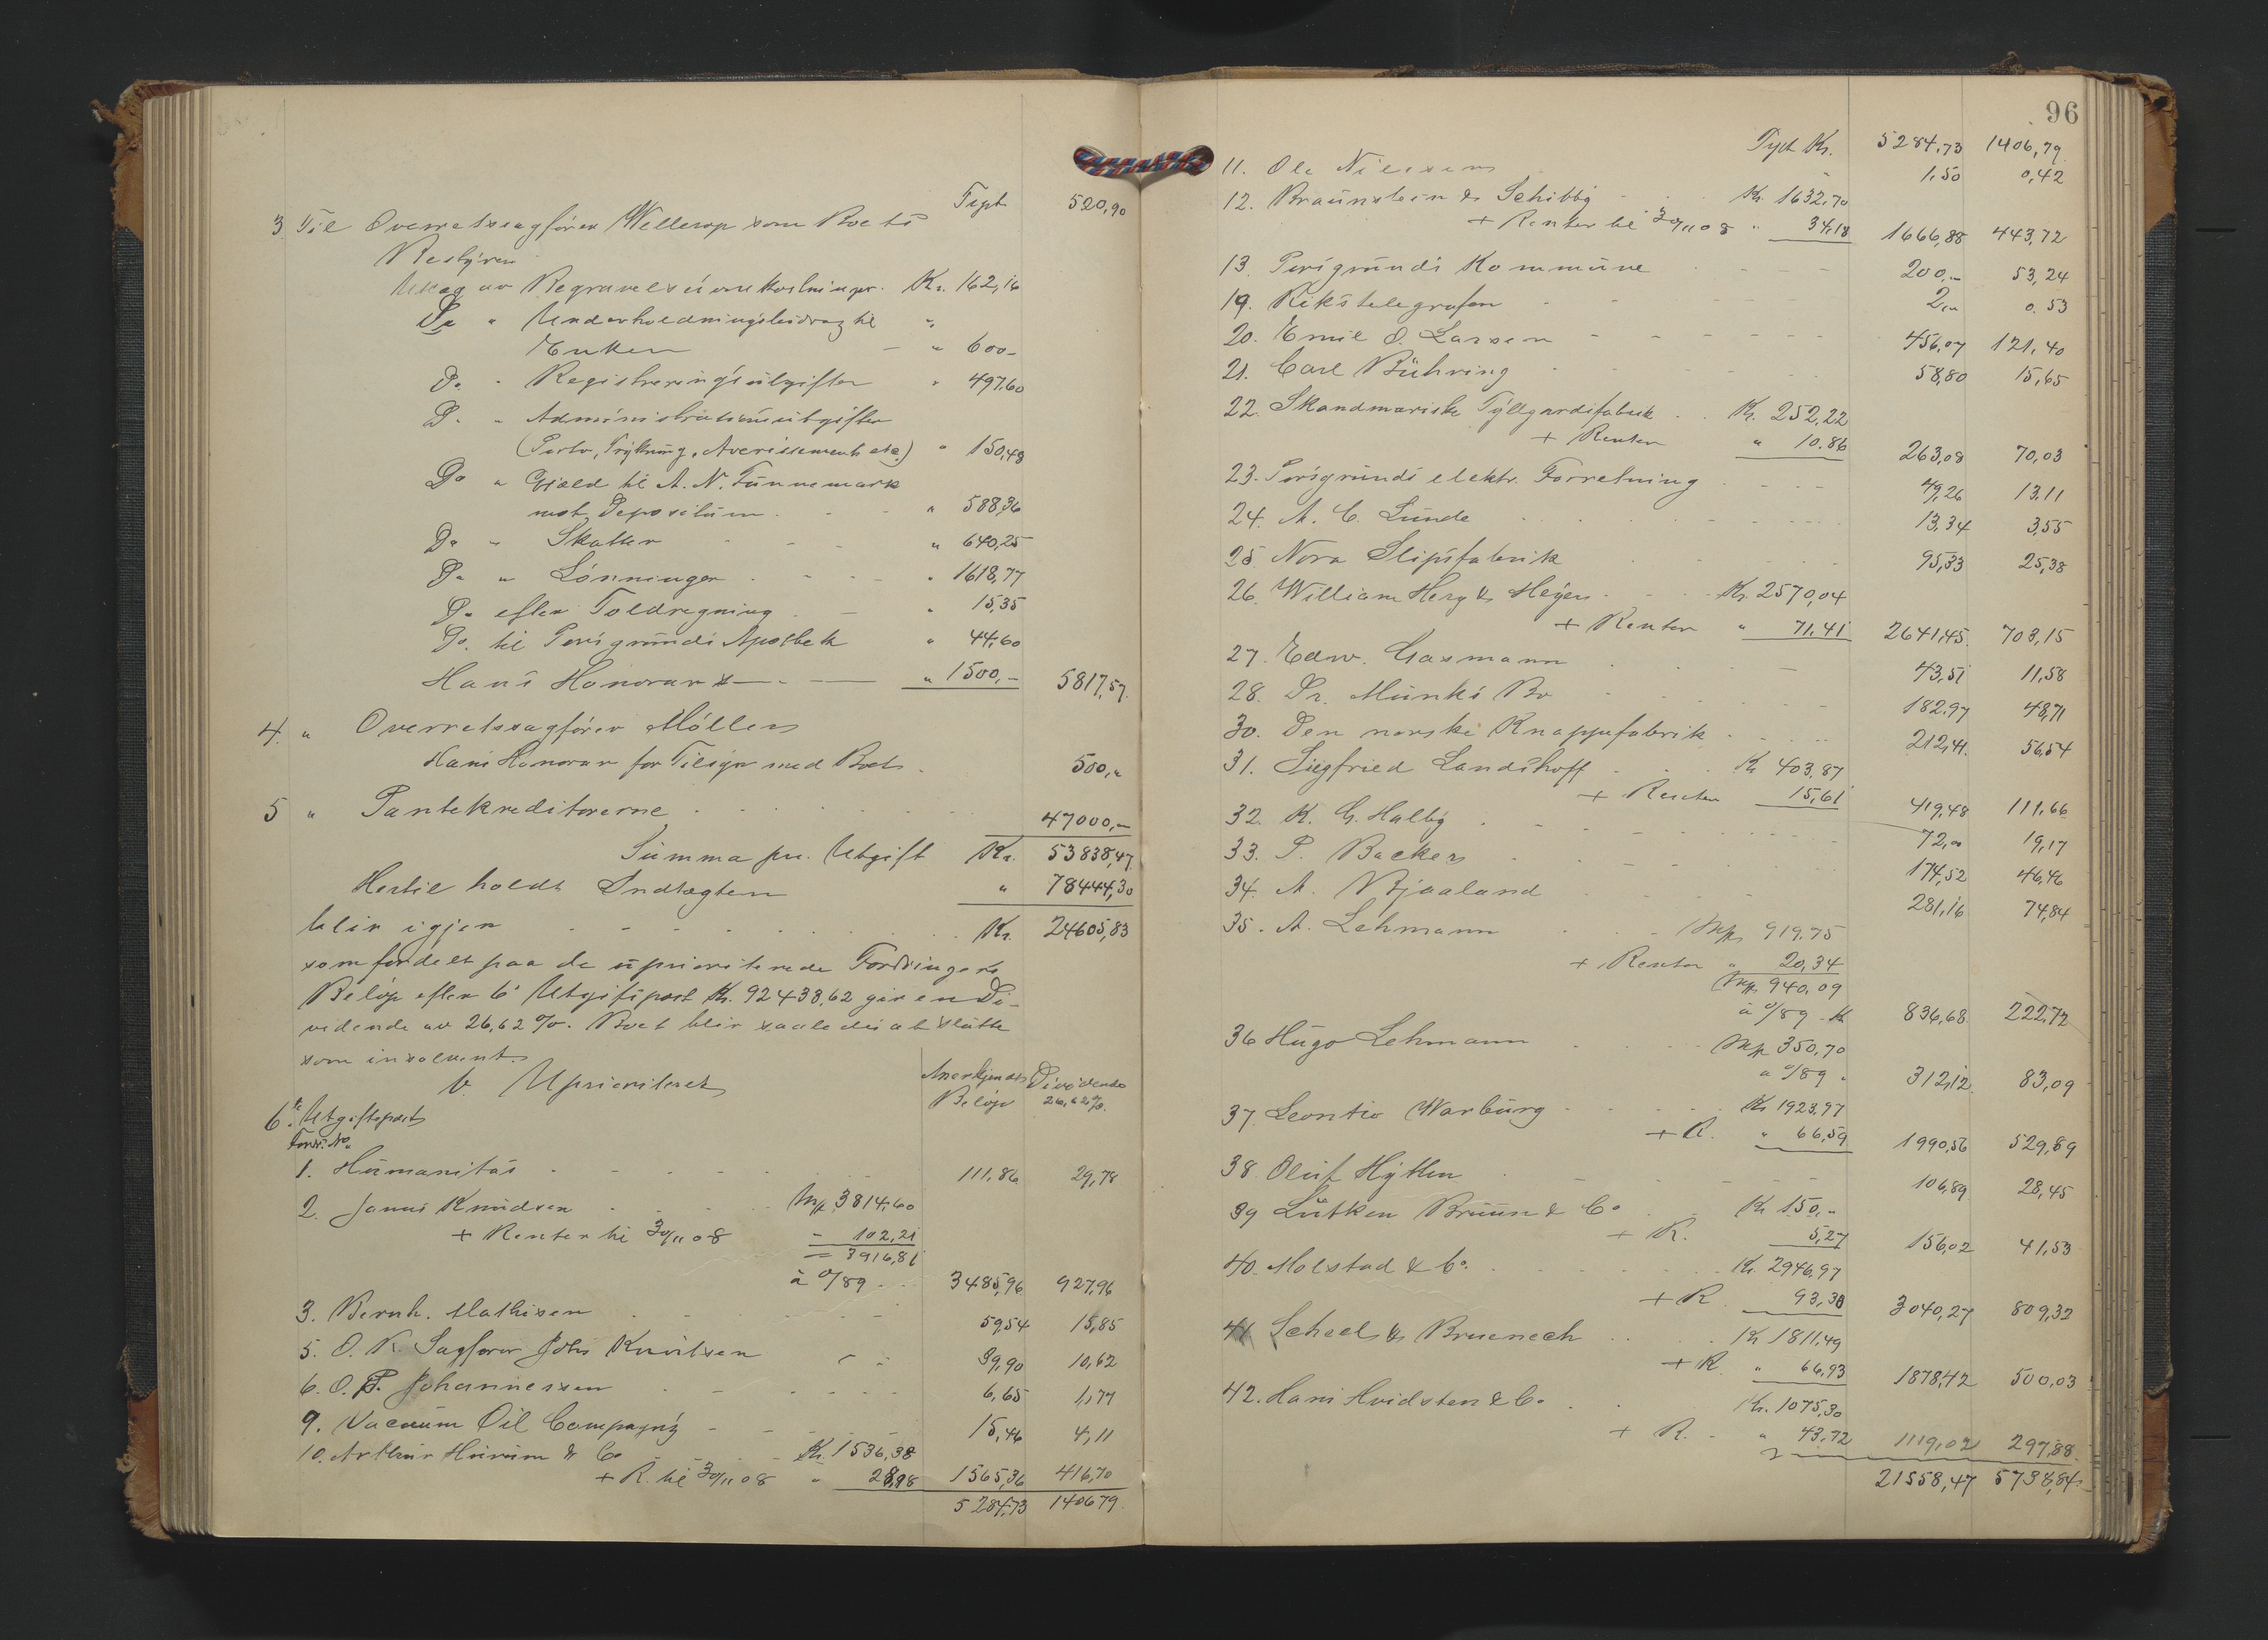 Trspt 520,90
3. Til Overretssagfører Wellerop som Boets
Bestyrer
Utlæg av Begravelsesomkostninger. Kr. 162,16
Do " Underholdningsbidrag til "
Enken - " 600 -
Do " Registreringsutgifter " 497,60
Do " Administrationsutgifter
(Porto, Trykning, Avertissement etc.) " 150,48
Do " Gjæld til A. N. Funnemark
mot Depositum . - - " 588,36
Do " Skatter - - - " 640,25
Do " Lønninger - - - " 1618,77
Do efter Toldregning - - " 15,35
Do. til Porsgrunds Apothek " 44,60
Hans Honorar " 1500,- 5817,57
4. " Overretssagfører Møller
Hans Honorar for Tilsyn med Boet . 500,"
5 " Pantekreditorerne . . . . 47000,-
Summa pr. Utgift Kr. 53838,47
Hertil holdt Indtægten " 78444,30
blir igjen - - - - - Kr. 24605,83
som fordelt paa de uprioriterede Fordringers
Beløp efter 6' Utgiftspost Kr. 92438,62 gir en Di-
vidende av 26,62 %. Boet blir saaledes at slutte
som insolvent.
b. Uprioritert
Anerkjendt Beløp Dividende 26,62 %.
6te Utgiftspost
Fordr. No.
1. Humanitas - - - - 111,86 29,78
2. Janus Knudsen - - - Mk. 3814,60
+ Renter til 30/11 08 - 102,21
= 3916,81
à 0/89 . . 3485,96 927,96
3. Bernh. Mathisen - - - 59,54 15,85
5. O. R. Sagfører Johs Knudtsen - - 39,90 10,62
6. O. P. Johannessen - - - 6,65 1,77
9. Vacuum Oil Company - - - 15,46 4,11
10. Arthur Hurum & Co - - Kr. 1536,38
+ R. til 30/11 08 " 28,98 1565,36 416,70
5284,73 1406,79
96
Trspt Kr. 5284,73 1406,79
11. Ole Nielsen - 1,50 0,42
12. Braunstein & Schibbÿ . . Kr. 1632,70
+ Renter til 30/11 08 " 34,18 1666,88 443,72
13. Porsgrunds Kommune - - - 200,- 53,24
19. Rikstelegrafen - - 2,- 0.53
20. Emil O. Larsen - - - - 456,07 121,40
21. Carl Bühring - - - 58,80 15,65
22. Skandinaviske Tyllgardifabrik . . Kr. 252,22
+ Renter " 10.86 263,08 70,03
23. Porsgrunds elektr. Forretning - - - 49,26 13,11
24. A. C. Lunde . . . . 13,34 3,55
25 Nora Slipsfabrik . . . 95,33 25,38
26. William Herz & Heyer . . . Kr. 2570,04
+ Renter " 71,41 2641,45 703,15
27. Edw. Gasmann . . . 43,51 11,58
28. Dr. Munks Bo - - - 182,97 48,71
30. Den norske Knappefabrik . . . 212,41 56,54
31. Siegfried Landshoff . . Kr 403,87
+ Renter 15,61 419,48 111,66
32. K. G. Halby . - - - 72,00 19,17
33. P. Backer . . . 174,52 46,46
34. A. Bjaaland . . . 281,16 74,84
35. A. Lehmann . . . Mk. 919.75
+ Renter " 20,34
Mk. 940,09
à 0/89 Kr 836,68 222,72
36 Hugo Lehmann - - - Mk 350,70
à 0/89 " 312,12 83,09
37. Leontio Warburg - - - Kr 1923,97
+ R. " 66,59 1990,56 529,89
38 Oluf Hytten . - - - 106,89 28,45
39 Lütken Bruun & Co . . Kr 150,-
+ R. 5,27 156,02 41,53
40. Molstad & Co. - - - Kr. 2946,97
+ R. 93,30 3040,27 809,32
41 Scheel & Bruenech . . . Kr 1811,49
+ R. " 66,93 1878,42 500,03
42. Hans Hvidsten & Co. . . Kr. 1075,30
+ R. - " 43,72 1119,02 297,88
21558,47 5738,84